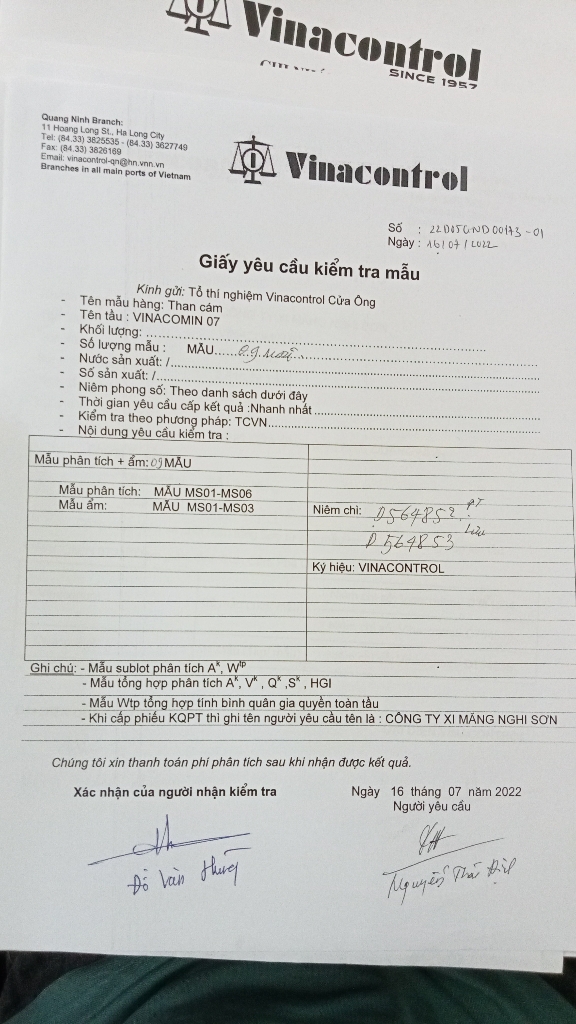 Vinacontrol
SINCE 1957
Quang Ninh Branch:
11 Hoang Long St., Ha Long City
Tel: (84.33) 3825535 - (84.33) 3627749
Fax: (84.33) 3826169
Email: vinacontrol-qn@hn.vnn.vn
Branches in all main ports of Vietnam
Vinacontrol
Số : 22D05GND00173-01
Ngày : 16/07/2022
Giấy yêu cầu kiểm tra mẫu
Kính gửi: Tổ thí nghiệm Vinacontrol Cửa Ông
- Tên mẫu hàng: Than cám
- Tên tàu : VINACOMIN 07
- Khối lượng: ..........
- Số lượng mẫu : MẪU......09 mẫu..........
- Nước sản xuất: /..........
- Số sản xuất: /..........
- Niêm phong số: Theo danh sách dưới đây
- Thời gian yêu cầu cấp kết quả :Nhanh nhất ..........
- Kiểm tra theo phương pháp: TCVN..........
- Nội dung yêu cầu kiểm tra :
Mẫu phân tích + ẩm: 09 MẪU
Mẫu phân tích: MẪU MS01-MS06
Mẫu ẩm: MẪU MS01-MS03
Niêm chì: D564852 PT
D564853 Lưu
Ký hiệu: VINACONTROL
Ghi chú: - Mẫu sublot phân tích Aᵏ, Wᵗᵖ
- Mẫu tổng hợp phân tích Aᵏ, Vᵏ , Qᵏ ,Sᵏ , HGI
- Mẫu Wtp tổng hợp tính bình quân gia quyền toàn tầu
- Khi cấp phiếu KQPT thì ghi tên người yêu cầu tên là : CÔNG TY XI MĂNG NGHI SƠN
Chúng tôi xin thanh toán phí phân tích sau khi nhận được kết quả.
Xác nhận của người nhận kiểm tra
Ngày 16 tháng 07 năm 2022
Người yêu cầu
Đỗ Văn
Nguyễn Thái